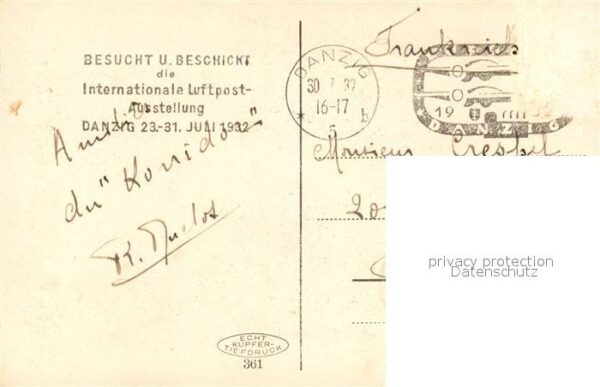 BESUCHT U. BESCHICKT
die
Internationale Luftpost-
Ausstellung
DANZIG 23.-31. JULI 1932
du "Korridor"
ECHT
KUPFER-
TIEFDRUCK
361
DANZIG
30 7 32
16-17
* 5 b
19
DANZIG
Frankreich
Monsieur Crespel
20
privacy protection
Datenschutz